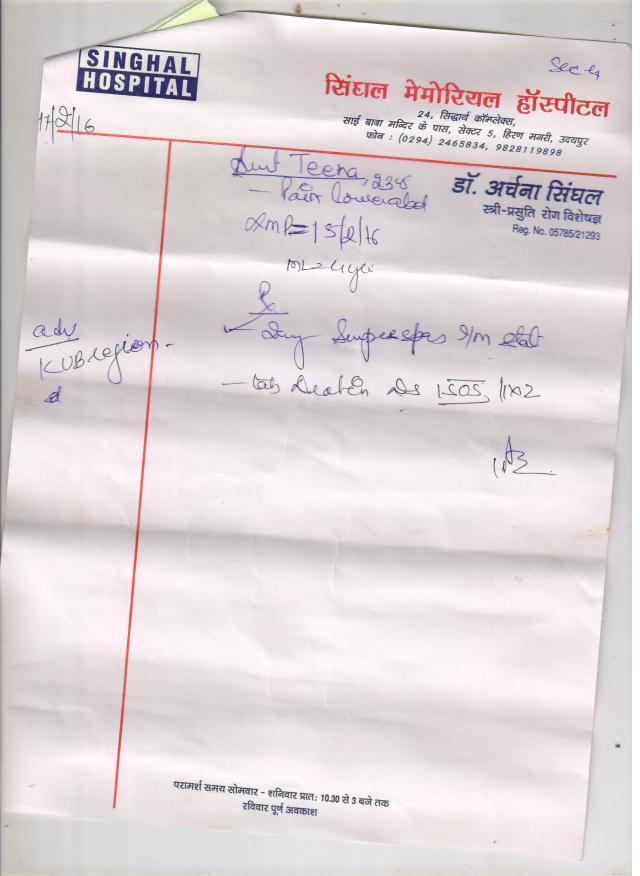 SINGHAL
HOSPITAL
Sec 4
सिंघल मेमोरियल हॉस्पीटल
24, सिद्धार्थ कॉम्प्लेक्स,
साई बाबा मन्दिर के पास, सेक्टर 5, हिरण मगरी, उदयपुर
फोन : (0294) 2465834, 9828119898
17/2/16
Smt Teena, 23
डॉ. अर्चना सिंघल
स्त्री-प्रसुति रोग विशेषज्ञ
Reg. No. 05785/21293
- Pain lower abd
LMP= 15/2/16
ML
Rx
Inj i/m stat
adv
KUB region -
- tab SOS, 1x2
परामर्श समय सोमवार - शनिवार प्रातः 10.30 से 3 बजे तक
रविवार पूर्ण अवकाश